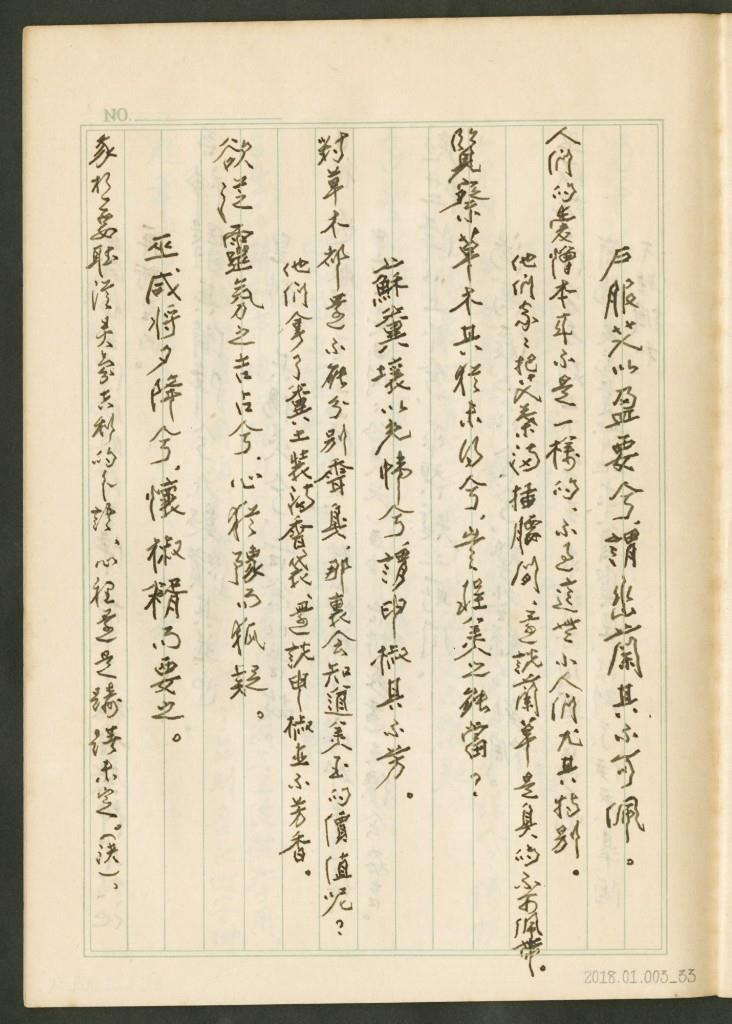 NO.
戶服艾以盈要兮、謂幽蘭其不可佩。
人們的愛憎本來不是一樣的、不過這些小人們尤其特別。
他們家家把艾蒿滿插腰間、還說蘭草是臭的不可佩帶。
覽察草木其猶未得兮、豈珵美之能當？
蘇糞壤以充幃兮、謂申椒其不芳。
對草木都還不能分別香臭、那裏会知道美玉的價值呢？
他們拿了糞土裝滿香袋、還說申椒並不芳香。
欲從靈氛之吉占兮、心猶豫而狐疑。
巫咸將夕降兮、懷椒糈而要之。
我想要聽從靈氛吉利的占語、心裡還是躊躇未定。
2018.01.003_33